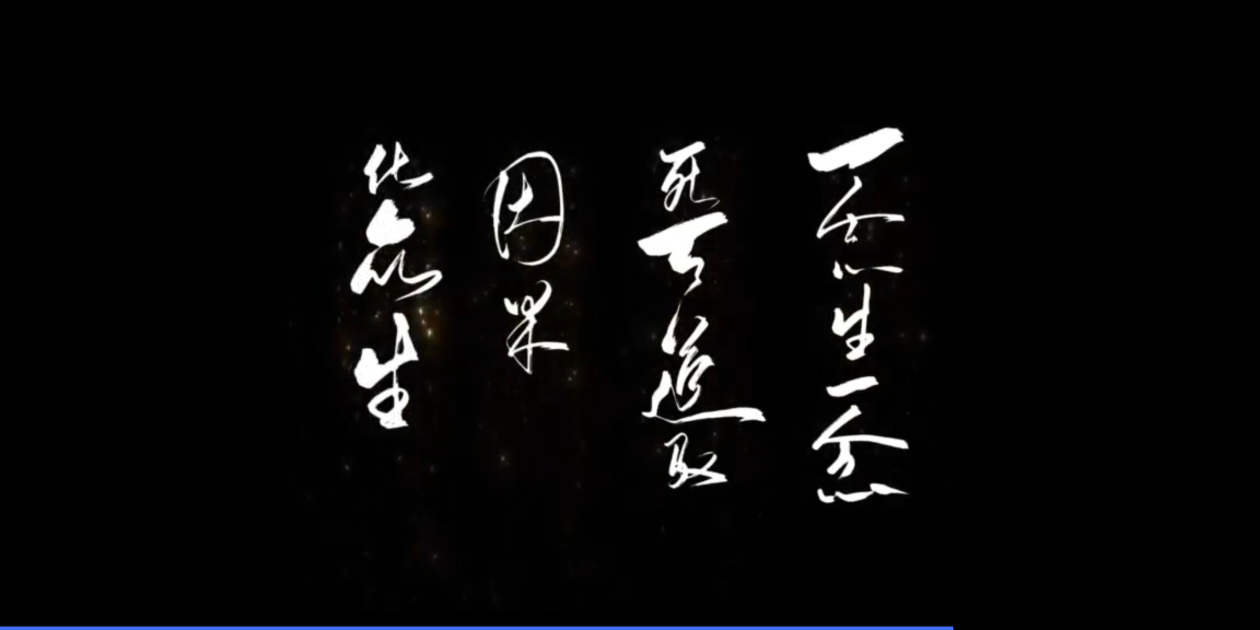 一念生一念
死天道取
因果
化众生